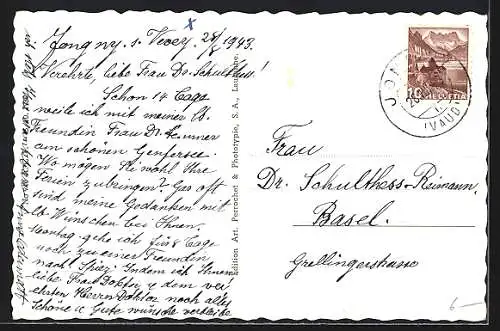 Jongny s. Vevey 28/8 1943.
Verehrte, liebe Frau Dr. Schulthess!
Schon 14 Tage
weile ich mit meiner lb.
Freundin Frau Dr.
am schönen Genfersee.
Wo mögen Sie wohl Ihre
Ferien zubringen? Gar oft
sind meine Gedanken mit
lb. Wünschen bei Ihnen.
Montag gehe ich für 8 Tage
noch zu einer Freundin
nach Spiez. Indem ich Ihnen
liebe Frau Doktor u. dem ver-
ehrten Herrn Doktor noch alles
Schöne u. Gute wünsche verbleibe
Edition Art. Perrochet & Phototypie, S. A., Lausanne.
JON
(VAUD)
10 HELVETIA
Frau
Dr. Schulthess-Reimann.
Basel.
Grellingerstrasse
6.—